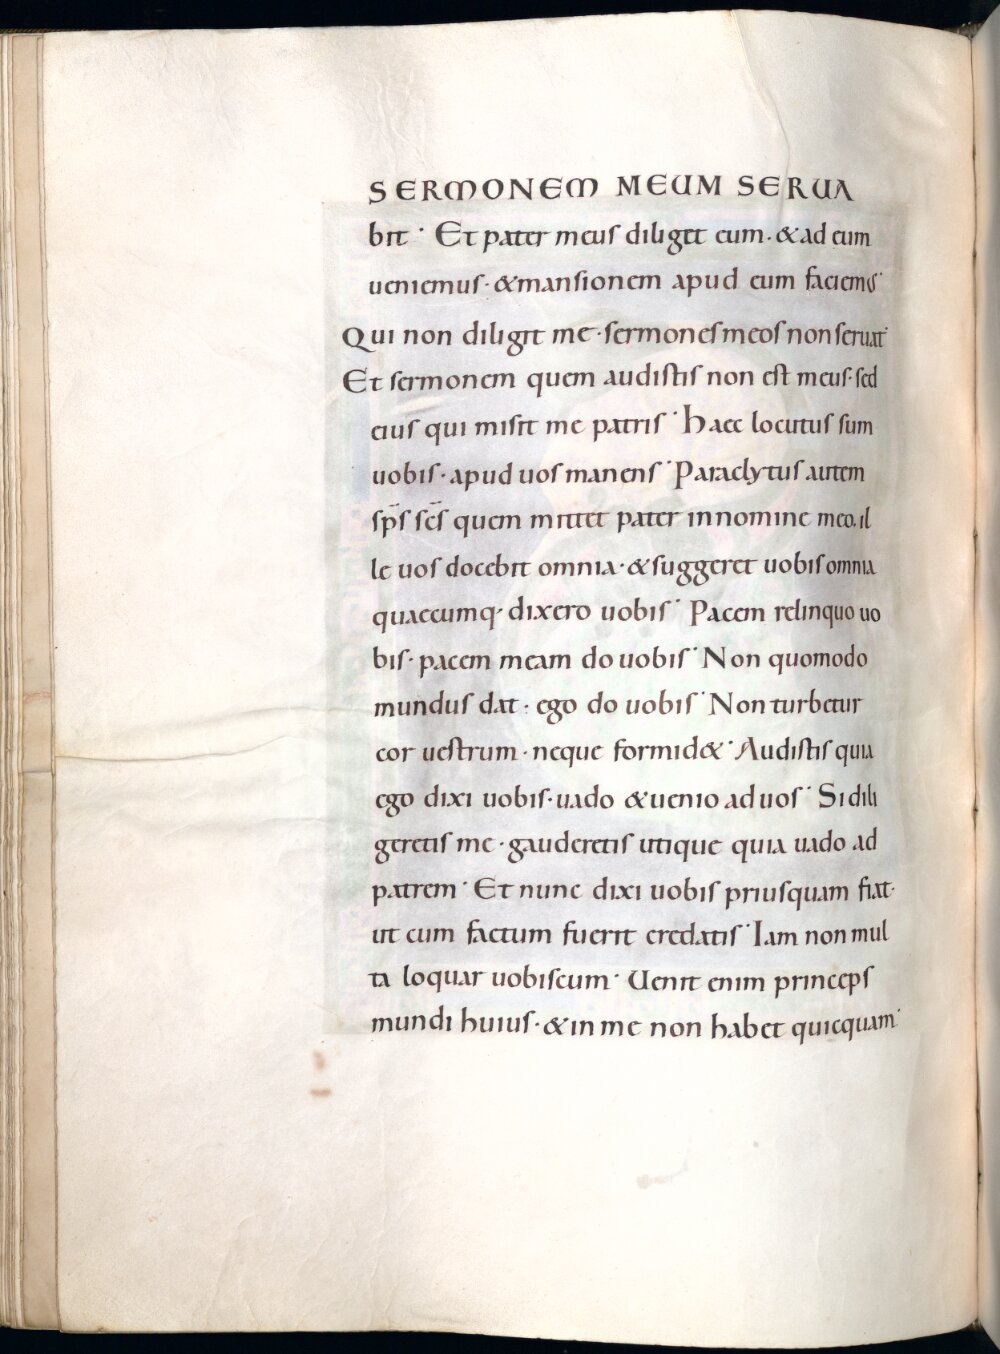 SERMONEM MEUM SERUA
bit · Et pater meus diliget eum · & ad eum
ueniemus · & mansionem apud eum faciemus ·
Qui non diligit me · sermones meos non seruat ·
Et sermonem quem audistis non est meus · sed
eius qui misit me patris · Haec locutus sum
uobis · apud uos manens · Paraclytus autem
sp̅s sc̅s quem mittet pater in nomine meo. il
le uos docebit omnia · & suggeret uobis omnia
quaecumq· dixero uobis · Pacem relinquo uo
bis · pacem meam do uobis · Non quomodo
mundus dat · ego do uobis · Non turbetur
cor uestrum · neque formid& · Audistis quia
ego dixi uobis · uado & uenio ad uos · Si dili
geretis me · gauderetis utique quia uado ad
patrem · Et nunc dixi uobis priusquam fiat ·
ut cum factum fuerit credatis · Iam non mul
ta loquar uobiscum · Uenit enim princeps
mundi huius · & in me non habet quicquam ·